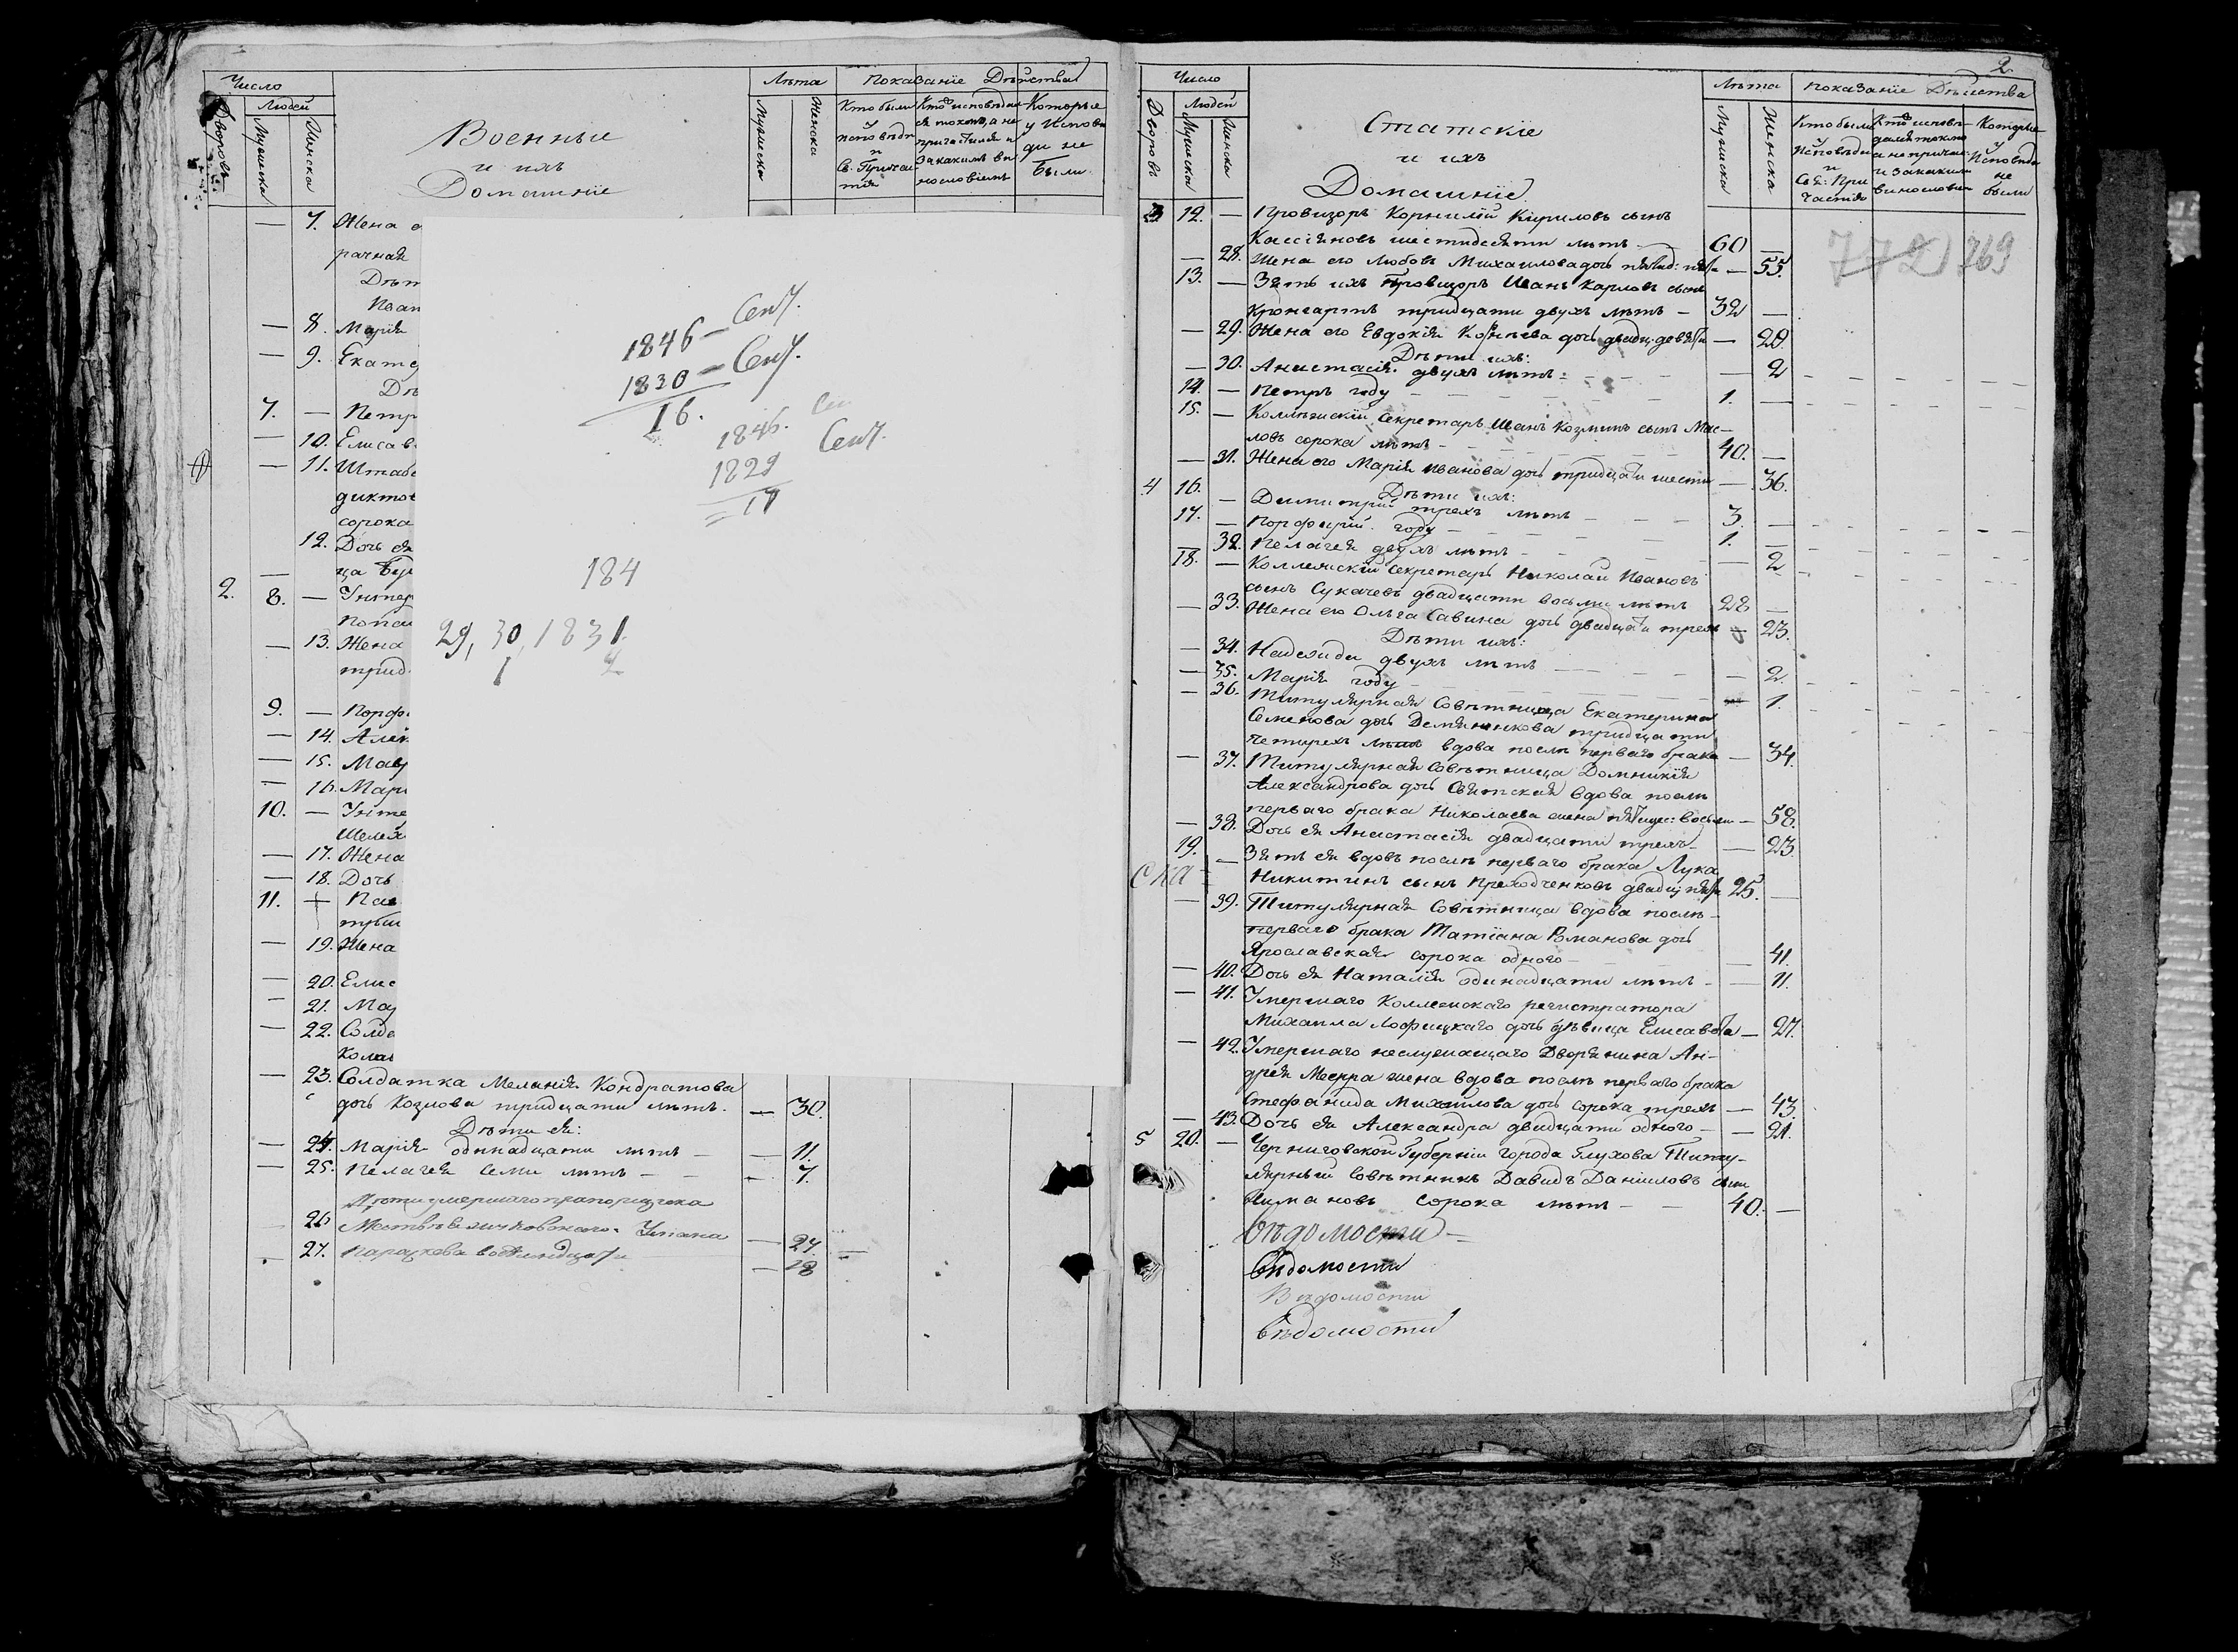 Число
Людей
Дворовъ
Мужеска
Женска
Военные
и ихъ
Домашнїе
Лѣта
Мужеска
Женска
Показанїе Дѣйства
Кто были
у
исповѣди
и
Св. Причас
тїя
Кто исповѣдал
ся токмо, а не
причастился и
за какимъ ви
нословїемъ
Которые
у Испове
ди не
были
— 7. Жена
рачная
— 8. Марїя
— 9. Екате
7. — Петр
— 10. Елисав
— 11. Штабс
диктов
сорока
12. Дочь ея
ца
2. 8. — Унтер
— 13. Жена
трид
9. — Порф
— 14. Алек
— 15. Мав
— 16. Мар
10. — Унте
Шелех
— 17. Жена
— 18. Дочь
11. —
— 19. Жена
— 20. Елис
— 21. Ма
— 22. Солд
— 23. Солдатка Меланїя Кондратова
дочь Козлова тридцати лѣтъ. — 30.
Дѣти ея:
— 24. Марїя одинадцати лѣтъ — — 11.
— 25. Пелагея семи лѣтъ — — 7.
Дѣти умершаго
26 Ульяна — 27.
— 27. Параскева — 18
1846 — Сент.
1830 — Сент.
16.
1846. Сен
1829 Сент.
= 17
184
29, 30, 1831
1 2
2.
Число
Людей
Дворовъ
Мужеска
Женска
Статскїе
и ихъ
Домашнїе
Лѣта
Мужеска
Женска
Показанїе Дѣйства
Кто были
у
Исповѣди
и
Свя: При
частїя
Кто исповѣ-
дался токмо
а не причас
и за какимъ
винословїем
Которые
у
Исповѣди
не
были
772 769
3 12. — Провизоръ Корнилїй Кириловъ сынъ
Кассїяновъ шестидесяти лѣтъ — 60 —
— 28. Жена его Любовь Михаилова дочь — 55.
13. — Зять ихъ Провизоръ Иванъ Карловъ сынъ
Кронгартъ тридцати двухъ лѣтъ — 32 —
— 29. Жена его Евдокїя дочь двадц: девяти — 29.
Дѣти ихъ:
— 30. Анастасїя двухъ лѣтъ — — 2
14. — Петръ году — 1. —
15. — Коллежскїй Секретарь Иванъ Козминъ сынъ Мас-
ловъ сорока лѣтъ — 40. —
— 31. Жена его Марїя Иванова дочь тридцати шести — 36.
Дѣти ихъ:
4 16. — Димитрїй трехъ лѣтъ — 3. —
17. — Порфирїй году — 1. —
32. Пелагея двухъ лѣтъ — — 2
18. — Коллежскїй секретарь Николай Ивановъ
сынъ Сукачевъ двадцати восьми лѣтъ 28 —
— 33. Жена его Ольга Савина дочь двадцати трехъ — 23.
Дѣти ихъ:
— 34. Надежда двухъ лѣтъ — — 2.
— 35. Марїя году — — 1.
— 36. Титулярная Совѣтница Екатерина
Семенова дочь Демяненкова тридцати
четырехъ лѣтъ вдова послѣ перваго брака — 34.
— 37. Титулярная Совѣтница Домникїя
Александрова дочь Свѣтская вдова послѣ
перваго брака Николаева жена — 58.
— 38. Дочь ея Анастасїя двадцати трехъ — — 23.
19. — Зять ея вдовъ послѣ перваго брака Лука
Никитинъ сынъ Преходченковъ двадц: пяти 25. —
— 39. Титулярная Совѣтница вдова послѣ
перваго брака Татїана Романова дочь
Ярославская сорока одного — — 41.
— 40. Дочь ея Наталїя одинадцати лѣтъ — — 11.
— 41. Умершаго Коллежскаго регистратора
Михаила Лофицкаго дочь дѣвица Елисавета — 27.
— 42. Умершаго неслужащаго Дворянина Ан-
дрея жена вдова послѣ перваго брака
Стефанида Михаилова дочь сорока трехъ — 43
— 43. Дочь ея Александра двадцати одного — — 21.
5 20. — Черниговской Губернїи города Глухова Титу-
лярный Совѣтникъ Давидъ Данїиловъ сынъ
Лимановъ сорока лѣтъ — 40. —
Вѣдомости
Вѣдомости
Вѣдомости
Вѣдомости